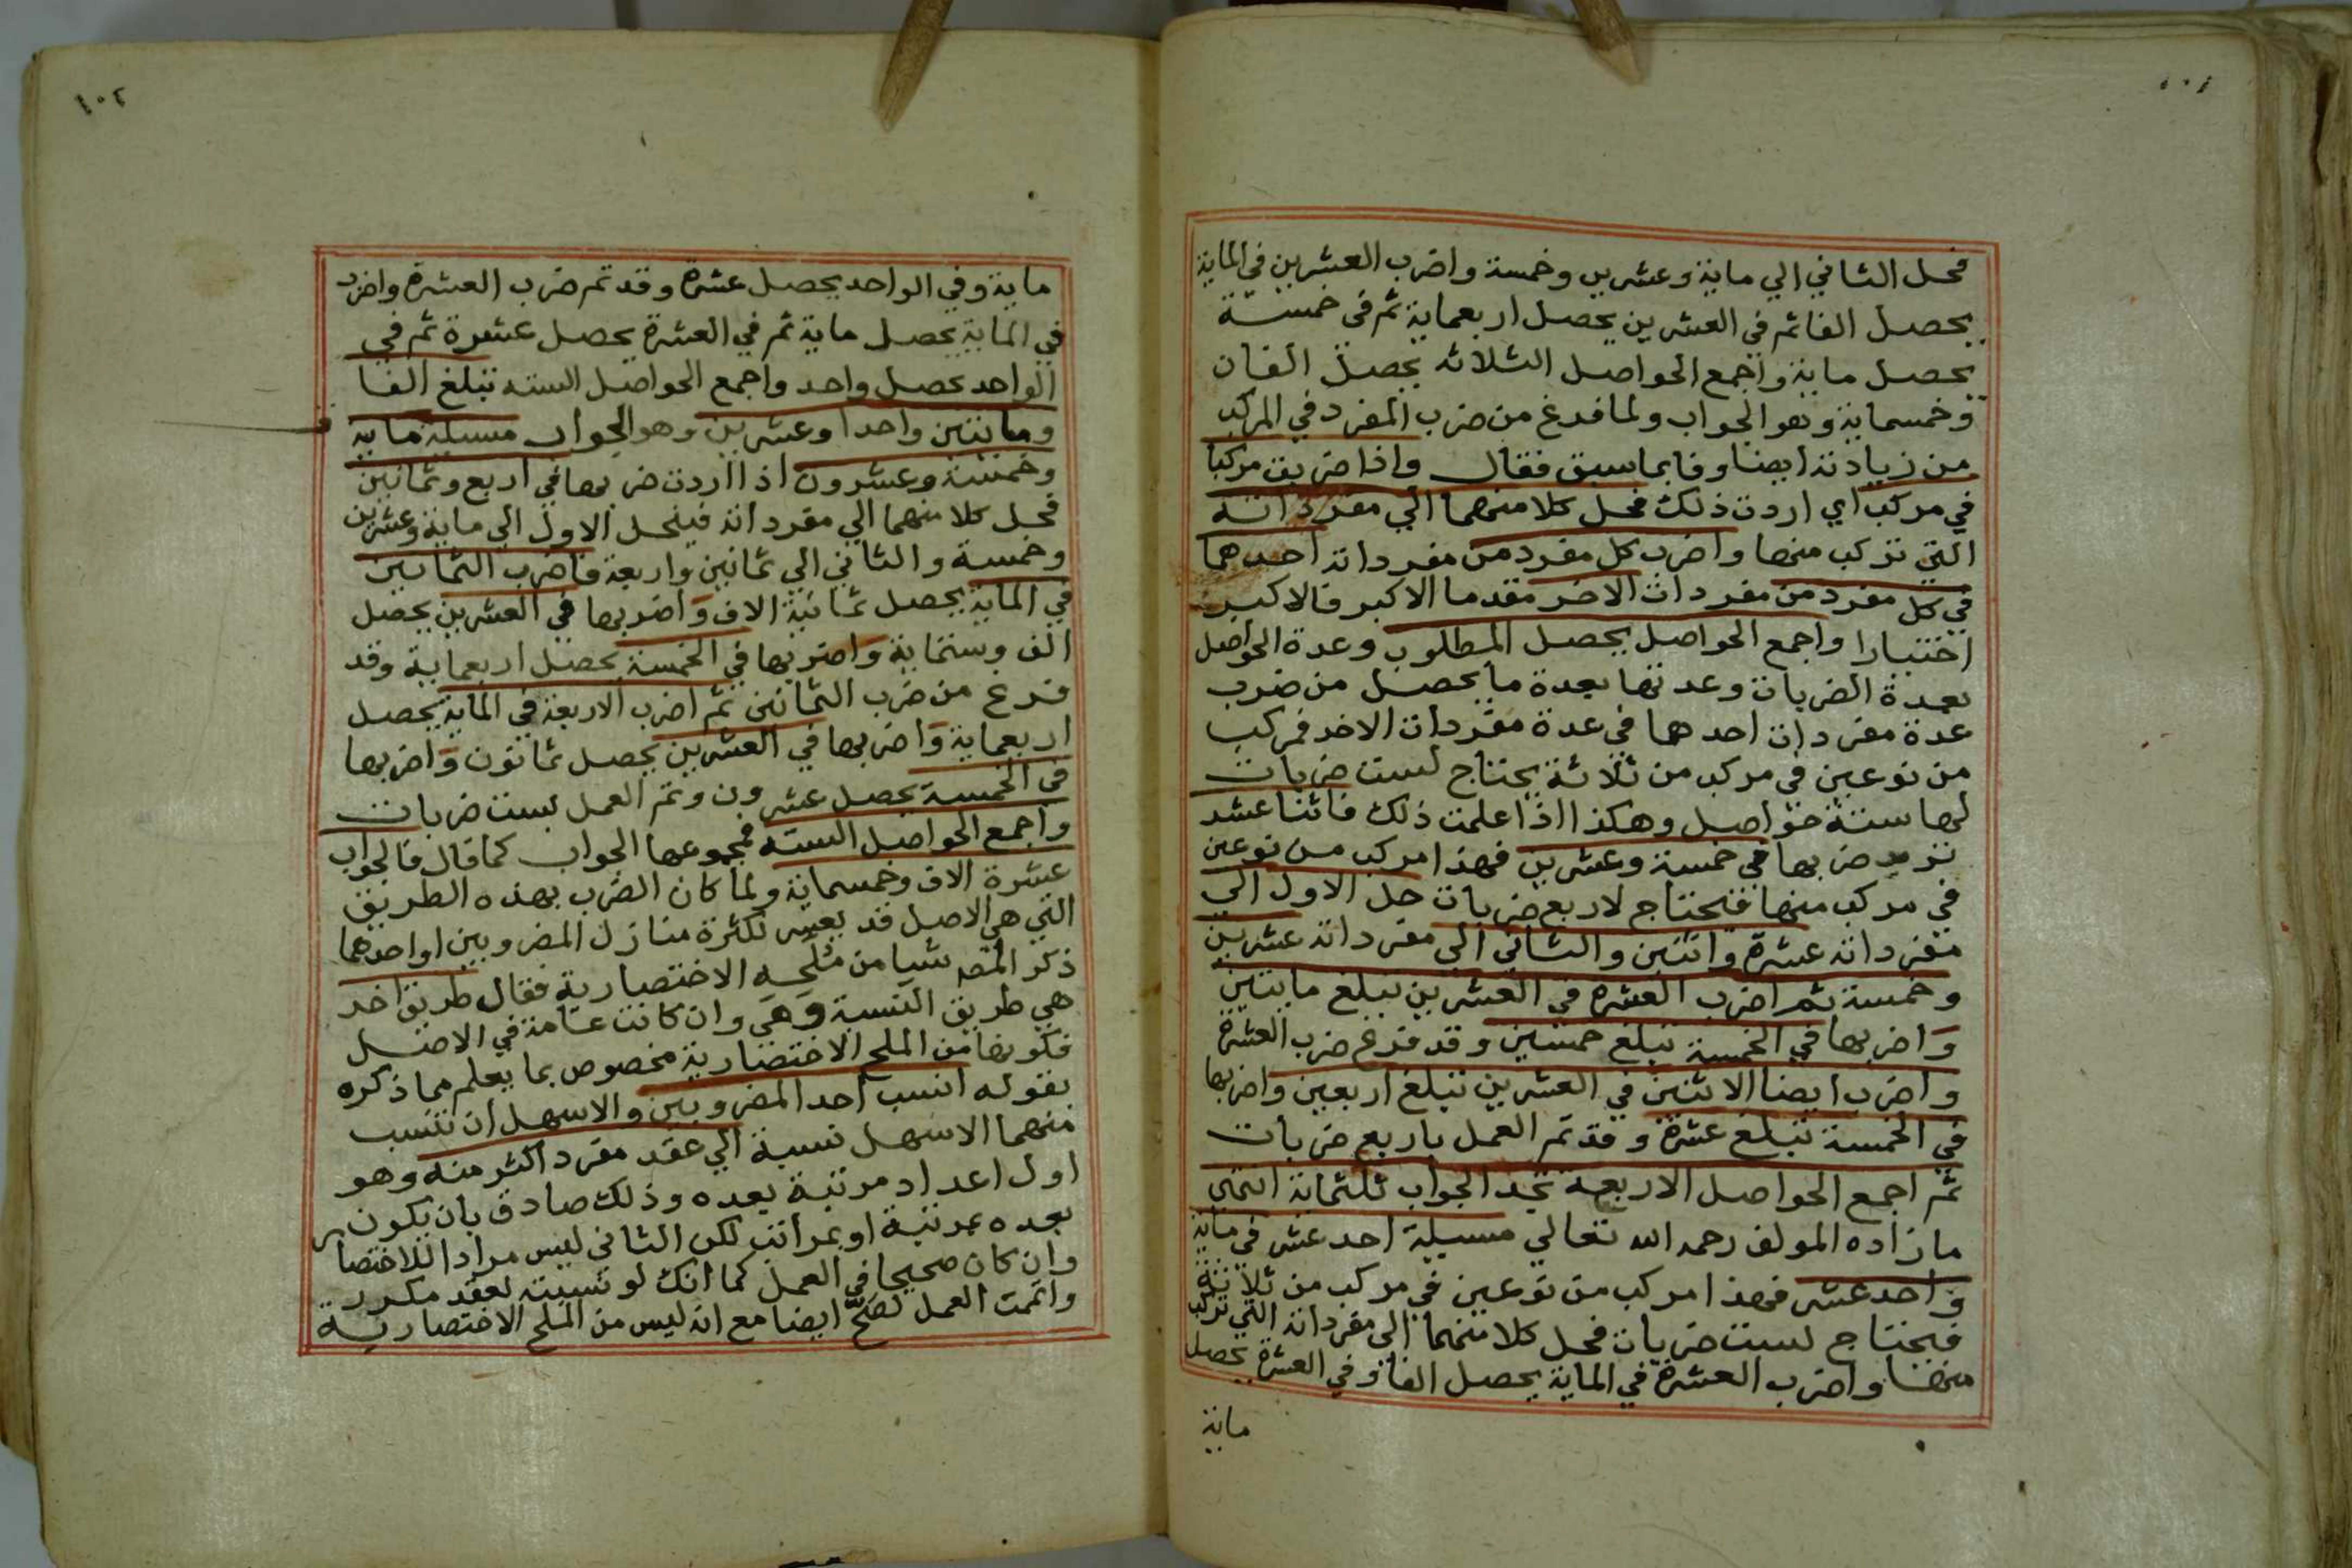 ١٠١
فحل الثاني الي ماية وعشرين وخمسة واضرب العشرين في الماية
يحصل الفا ثم في العشرين يحصل اربعماية ثم في خمسة
يحصل ماية واجمع الحواصل الثلاثه يحصل الفان
وخمسماية وهو الجواب ولما فرغ من ضرب المفرد في المركب
من زيادته ايضا وفا بما سبق فقال واذا ضربت مركبا
في مركب اي اردت ذلك فحل كلا منهما الي مفرداته
التي تركب منها واضرب كل مفرد من مفردات احدهما
في كل مفرد من مفردات الاخر مقدما الاكبر فالاكبر
اختيارا واجمع الحواصل يحصل المطلوب وعدة الحواصل
بعدة الضربات وعدتها بعدة ما يحصل من ضرب
عدة مفردات احدهما في عدة مفردات الاخر فمركب
من نوعين في مركب من ثلاثة يحتاج لست ضربات
لها ستة حواصل وهكذا اذا علمت ذلك فاثنا عشر
تريد ضربها في خمسة وعشرين فهذا مركب من نوعين
في مركب منها فتحتاج لاربع ضربات حل الاول الي
مفرداته عشرة واثنين والثاني الي مفرداته عشرين
وخمسة ثم اضرب العشرة في العشرين تبلغ مايتين
واضربها في الخمسة تبلغ خمسين وقد فرغ ضرب العشرة
واضرب ايضا الاثنين في العشرين تبلغ اربعين واضربها
في الخمسة تبلغ عشرة وقد تم العمل باربع ضربات
ثم اجمع الحواصل الاربعة تجد الجواب ثلثماية انتهي
ما زاده المولف رحمه الله تعالي مسيلة احد عشر في ماية
واحد عشر فهذا مركب من نوعين في مركب من ثلاثة
فيحتاج لست ضربات فحل كلا منهما الي مفرداته التي تركب
منها واضرب العشرة في الماية يحصل الفا وفي العشرة يحصل
ماية
١٠٢
ماية وفي الواحد يحصل عشرة وقد تم ضرب العشرة واضرب
في الماية يحصل ماية ثم في العشرة يحصل عشرة ثم في
الواحد يحصل واحد واجمع الحواصل السته تبلغ الفا
ومايتين واحدا وعشرين وهو الجواب مسيلة ماية
وخمسة وعشرون اذا اردت ضربها في اربع وثمانين
فحل كلا منهما الي مفرداته فينحل الاول الي ماية وعشرين
وخمسة والثاني الي ثمانين واربعة فاضرب الثمانين
في الماية يحصل ثمانية الاف واضربها في العشرين يحصل
الف وستماية واضربها في الخمسة يحصل اربعماية وقد
فرغ من ضرب الثمانين ثم اضرب الاربعة في الماية يحصل
اربعماية واضربها في العشرين يحصل ثمانون واضربها
في الخمسة يحصل عشرون وتم العمل بست ضربات
واجمع الحواصل السته فمجموعها الجواب كما قال فالجواب
عشرة الاف وخمسماية ولما كان الضرب بهذه الطريق
التي هي الاصل قد يعسر لكثرة منازل المضروبين او احدهما
ذكر المصه شيا من ملحه الاختصارية فقال طريق اخر
هي طريق النسبة وهي وان كانت عامة في الاصل
فكونها من الملح الاختصارية مخصوص بما يعلم مما ذكره
بقوله انسب احد المضروبين والاسهل ان تنسب
منهما الاسهل نسبة الي عقد مفرد اكثر منه وهو
اول اعداد مرتبة بعده وذلك صادق بان يكون
بعده بمرتبة او بمراتب لكن الثاني ليس مرادا للاختصار
وان كان صحيحا في العمل كما انك لو نسبته لعقد مكرر
واتممت العمل لصح ايضا مع انه ليس من الملح الاختصارية